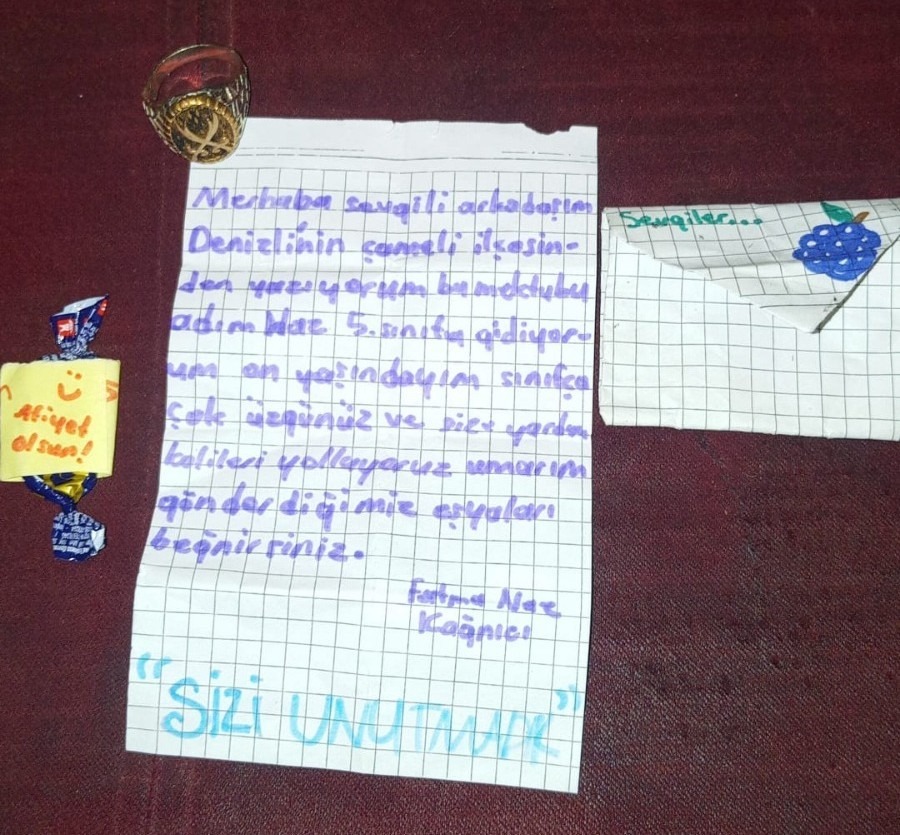 Merhaba sevgili arkadaşım
Denizli'nin çameli ilçesin-
den yazıyorum bu mektubu
adım Naz 5. sınıfa gidiyor-
um on yaşındayım sınıfça
çok üzgünüz ve size yardım
kolileri yolluyoruz umarım
gönderdiğimiz eşyaları
beğnirsiniz.
Fatma Naz
Kağnıcı
"SİZİ UNUTMADIK"
Sevgiler...
Afiyet
olsun!